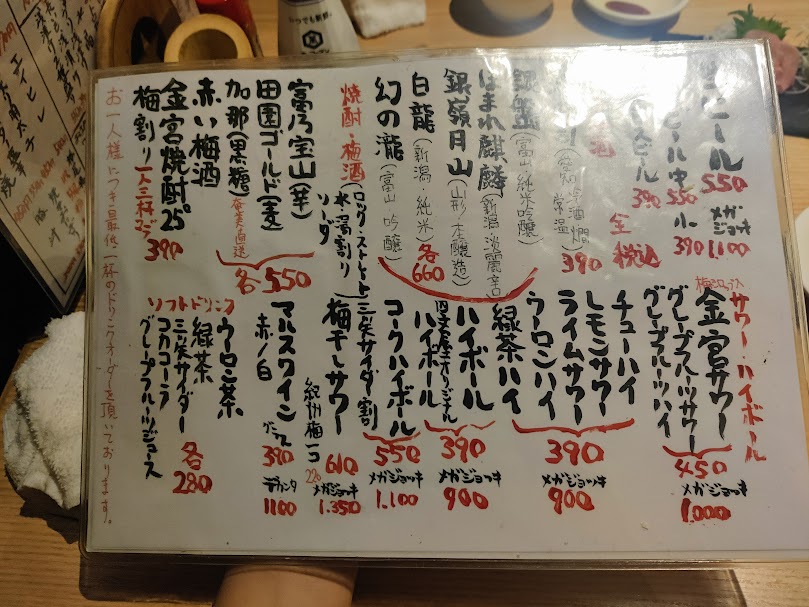 ビール 550
メガジョッキ 1,100
ビール中 550
小 390
ビール 390
全税込
酒
冷酒 燗 常温
390
銀盤 (富山 純米吟醸)
ほまれ麒麟 (新潟・淡麗辛口)
銀嶺月山 (山形 本醸造)
白龍 (新潟 純米)
幻の瀧 (富山 吟醸)
各660
焼酎・梅酒 (ロック・ストレート 水・湯割り ソーダ)
富乃宝山 (芋)
田園ゴールド (麦)
加那 (黒糖) 奄美直送
赤い梅酒
各550
金宮焼酎25°
梅割り 一人三杯マデ
390
サワー・ハイボール
梅シロップ入
金宮サワー
グレープフルーツサワー
グレープフルーツハイ
450
メガジョッキ
1,000
チューハイ
レモンサワー
ライムサワー
ウーロンハイ
緑茶ハイ
390
メガジョッキ
900
ハイボール
オリジナル
ハイボール
390
メガジョッキ
900
コークハイボール
三矢サイダー割
550
メガジョッキ
1,100
梅干しサワー
610
メガジョッキ
1,350
梅一コ
220
マルスワイン
赤/白
グラス
390
デカンタ
1100
ソフトドリンク
ウーロン茶
緑茶
三矢サイダー
コカコーラ
グレープフルーツジュース
各280
お一人様につき最低一杯のドリンクオーダーを頂いております。
エイヒレ